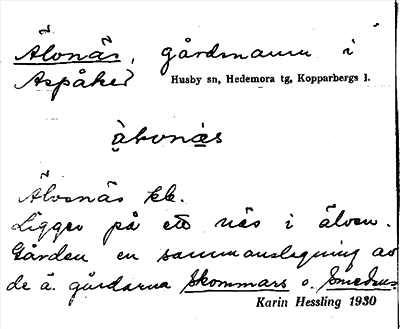 Älvnäs, gårdnamn i
Aspåker Husby sn, Hedemora tg, Kopparbergs l.
Älvsnäs kb.
Ligger på ett näs i älven.
Gården en sammanslagning av
de ä. gårdarna Skommars o. Smedens
Karin Hessling 1930